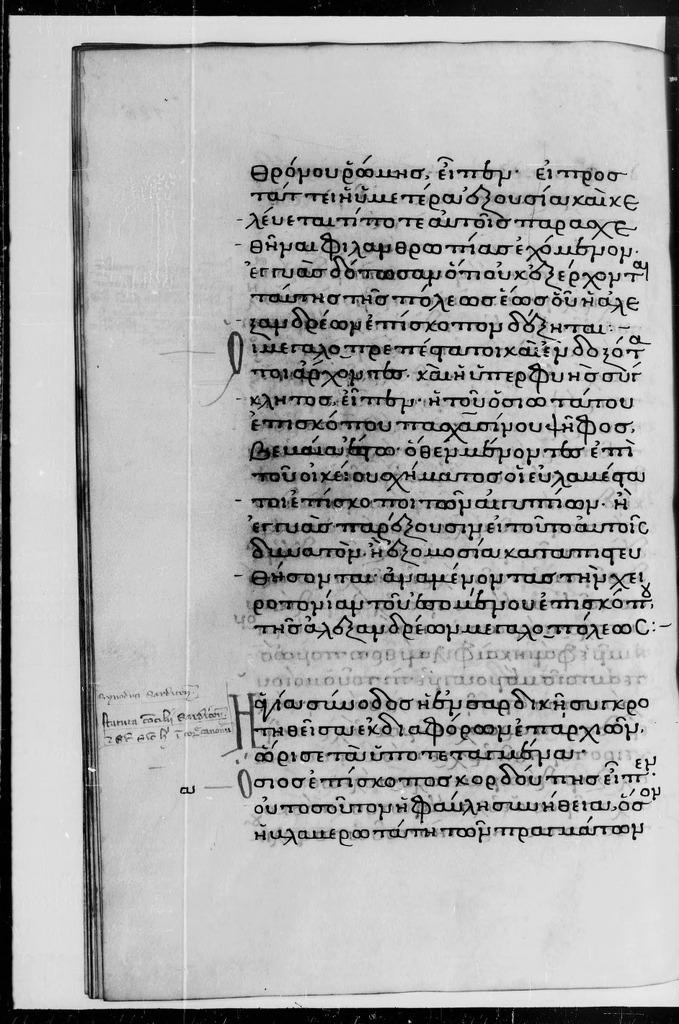 θρόνου ῥώμης, εἶπεν· εἰ προσ
τάττει ἡ ὑμετέρα ἐξουσία καὶ κε
λεύεται τί ποτε αὐτοῖς παρασχε
θῆναι φιλανθρωπίας ἐχόμενον·
ἐγγύας δότωσαν ὅτι οὐκ ἐξέρχονται
ταύτης τῆς πόλεως ἕως οὗ ἡ ἀλε
ξανδρέων ἐπίσκοπον δέξηται:-
Οἱ μεγαλοπρεπέστατοι καὶ ἐνδοξότα
τοι ἄρχοντες. καὶ ἡ ὑπερφυὴς σύγ
κλητος, εἶπεν· ἡ τοῦ ὁσιωτάτου
ἐπισκόπου πασχασίνου ψῆφος,
βεβαία ἔστω. ὅθεν μένοντες ἐπὶ
τοῦ οἰκείου σχήματος οἱ εὐλαβέστα
τοι ἐπίσκοποι τῶν αἰγυπτίων. ἢ
ἐγγύας παρέξουσιν εἰ τοῦτο αὐτοῖς
δυνατὸν. ἢ ἐξομοσία καταπιστευ
θήσονται. ἀναμένοντας τὴν χει
ροτονίαν τοῦ ἐσομένου ἐπισκόπου
τῆς ἀλεξανδρέων μεγαλοπόλεως:-
Synodus Sardicen
Statuta concilii Sardicen
Ἡ ἁγία σύνοδος ἡ ἐν σαρδικῇ συγκρο
τηθεῖσα ἐκ διαφόρων ἐπαρχιῶν,
ὥρισε τὰ ὑποτεταγμένα·
α Ὅσιος ἐπίσκοπος κορδούπης εἶπεν·
οὐ τοσοῦτον ἡ φαύλη συνήθεια, ὅσον
ἡ βλαβερωτάτη τῶν πραγμάτων